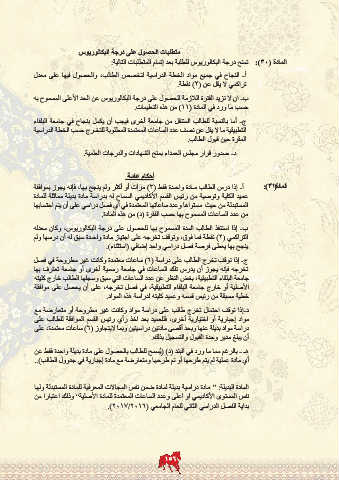 متطلبات الحصول على درجة البكالوريوس
المادة (٣٠): تمنح درجة البكالوريوس للطلبة بعد إتمام المتطلبات التالية:
أ‌- النجاح في جميع مواد الخطة الدراسية لتخصص الطالب، والحصول فيها على معدل
تراكمي لا يقل عن (٢) نقطة.
ب‌- ان لا تزيد الفترة اللازمة للحصول على درجة البكالوريوس عن الحد الأعلى المسموح به
حسب ما ورد في المادة (١١) من هذه التعليمات.
ج‌- أما بالنسبة للطالب المنتقل من جامعة أخرى فيجب أن يكمل بنجاح في جامعة البلقاء
التطبيقية ما لا يقل عن نصف عدد الساعات المعتمدة المطلوبة للتخرج حسب الخطة الدراسية
المقررة حين قبول الطالب.
د‌- صدور قرار مجلس العمداء بمنح الشهادات والدرجات العلمية.
أحكام عامة
المادة(٣١): أ‌- إذا درس الطالب مادة واحدة فقط (٣) مرات أو أكثر ولم ينجح بها، فإنه يجوز بموافقة
عميد الكلية وتوصية من رئيس القسم الأكاديمي السماح له بدراسة مادة بديلة مماثلة للمادة
المستبدلة من حيث مستواها وعدد ساعاتها المعتمدة في أي فصل دراسي على أن يتم احتسابها
من عدد الساعات المسموح بها حسب الفقرة (د) من هذه المادة.
ب‌- إذا استنفذ الطالب المدة المسموح بها للحصول على درجة البكالوريوس، وكان معدله
التراكمي (٢) نقطة فما فوق، وتوقف تخرجه على اجتياز مادة واحدة سبق له أن درسها ولم
ينجح بها يعطى فرصة فصل دراسي واحد إضافي (استثناء).
ج‌- إذا توقف تخرج الطالب على دراسة (٦) ساعات معتمدة وكانت غير مطروحة في فصل
تخرجه فإنه يجوز أن يدرس تلك الساعات في جامعة رسمية أخرى أو جامعة تعترف بها
جامعة البلقاء التطبيقية، بغض النظر عن عدد الساعات التي سبق وسجلها الطالب خارج كليته
الأصلية أو خارج جامعة البلقاء التطبيقية، في فصل تخرجه، على أن يحصل على موافقة
خطية مسبقة من رئيس قسمه وعميد كليته لدراسة هذه المواد.
د‌- إذا توقف احتمال تخرج طالب على دراسة مواد وكانت غير مطروحة أو متعارضة مع
مواد إجبارية أو اختيارية أخرى، فللعميد بعد أخذ رأي رئيس القسم الموافقة للطالب على
دراسة مواد بديلة عنها وبحد أقصى مادتين دراسيتين وبما لايتجاوز (٦) ساعات معتمدة، على
أن يبلغ مدير وحدة القبول والتسجيل بذلك.
هـ- بالرغم مما ورد في البند (د) يسمح للطالب بالحصول على مادة بديلة واحدة فقط عن
أي مادة عملية لم يتم طرحها أو تم طرحها ومتعارضة مع مادة إجبارية في جدول الطالب).
المادة البديلة: " مادة دراسية بديلة لمادة ضمن نفس المجالات المعرفية للمادة المستبدلة ولها
نفس المستوى الأكاديمي أو أعلى وعدد الساعات المعتمدة للمادة الأصلية" وذلك اعتبارا من
بداية الفصل الدراسي الثاني للعام الجامعي (٢٠١٧/٢٠١٦).